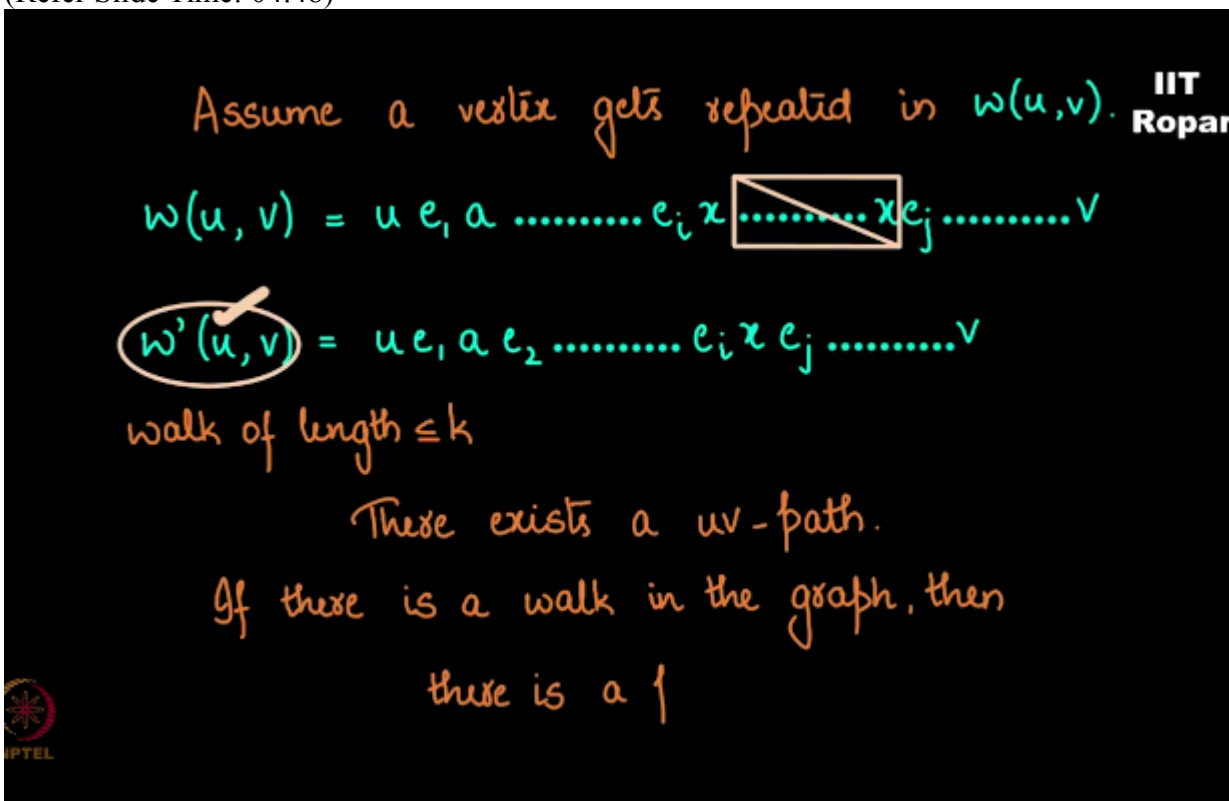 Assume a vertex gets repeated in w(u,v).
IIT
Ropar
w(u, v) = u e₁ a .......... eᵢ x .......... x eⱼ .......... v
w'(u, v) = u e₁ a e₂ .......... eᵢ x eⱼ .......... v
walk of length ≤ k
There exists a uv-path.
If there is a walk in the graph, then
there is a
NPTEL